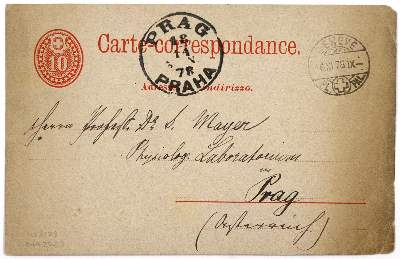 10
Carte-correspondance.
PRAG
78
PRAHA
GENÈVE
Adresse Indirizzo.
Herrn Profess. Dr S. Mayer
Physiolog. Laboratorium
Prag
(Oesterreich)